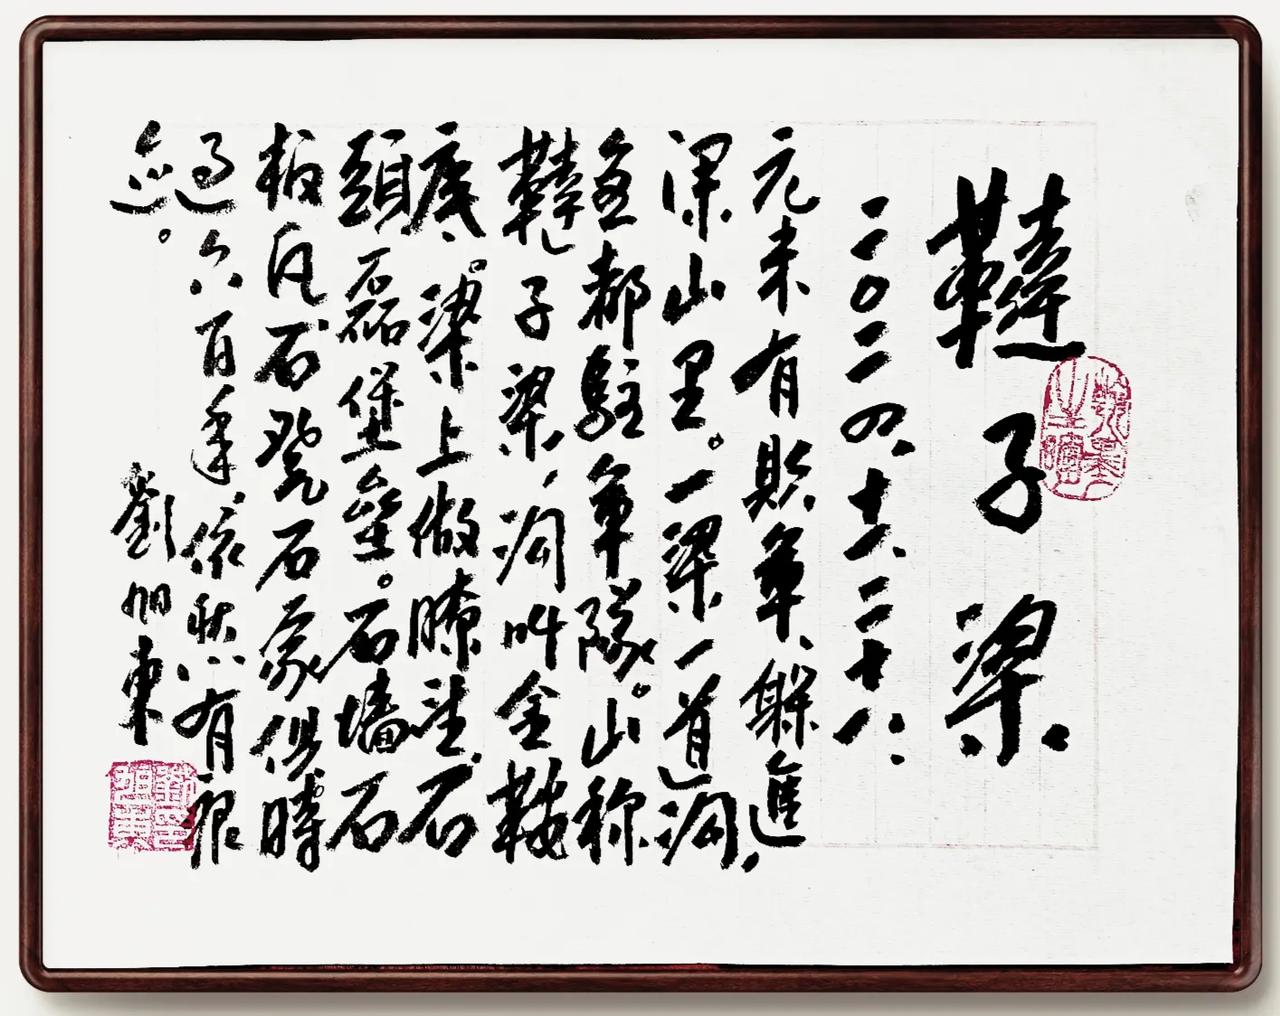 韃子梁
二〇二四、十二、二十八:
元末有敗軍、躲進
深山里。一梁一道溝,
全都駐軍隊。山称
韃子梁、溝叫金鞍
底、梁上做瞭望、石
頭磊堡壘。石墻石
板瓦石凳石家俱時
過六百年、依然有痕
迹。
劉旭東